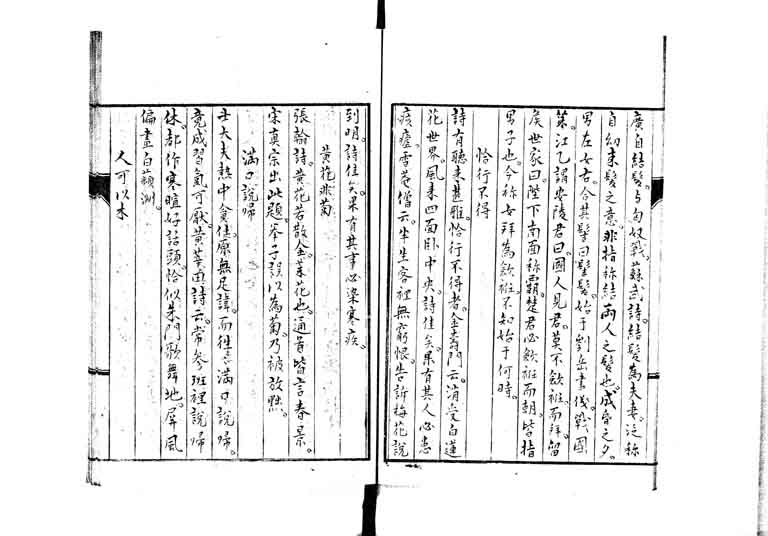 廣自結髮。与匈奴戰。蘇武詩。結髮為夫妻。泛称
自幼束髮之意。非指称結兩人之髮也。成昏之夕。
男左女右。合其髻曰髻髮。始于劉岳書儀。戰國
策。江乙謂安陵君曰。國人見君。莫不歛袵而拜。留
矦世家曰。陛下南面称霸。楚君必歛袵而朝。皆指
男子也。今称女拜為歛袵。不知始于何時。
恰行不得
詩有聽来甚雅。恰行不得者。金壽門云。消受白蓮
花世界。風来四面卧中央。詩佳矣。果有其人。必患
痎瘧。雪菴僧云。半生客裡無窮恨。告訴梅花說
到明。詩佳矣。果有其事。必染寒疾。
黄花非菊
張翰詩。黄花若散金。菜花也。通首皆言春景。
宋真宗出此題。举子誤以為菊。乃被放黜。
滿口說歸
士大夫熱中貪仕。原無足諱。而徃徃滿口說歸。
竟成習氣可厭。黄莘田詩云。常參班裡說歸
休。都作寒暄好話頭。恰似朱門歌舞地。屏風
偏畫白蘋洲。
人可以木